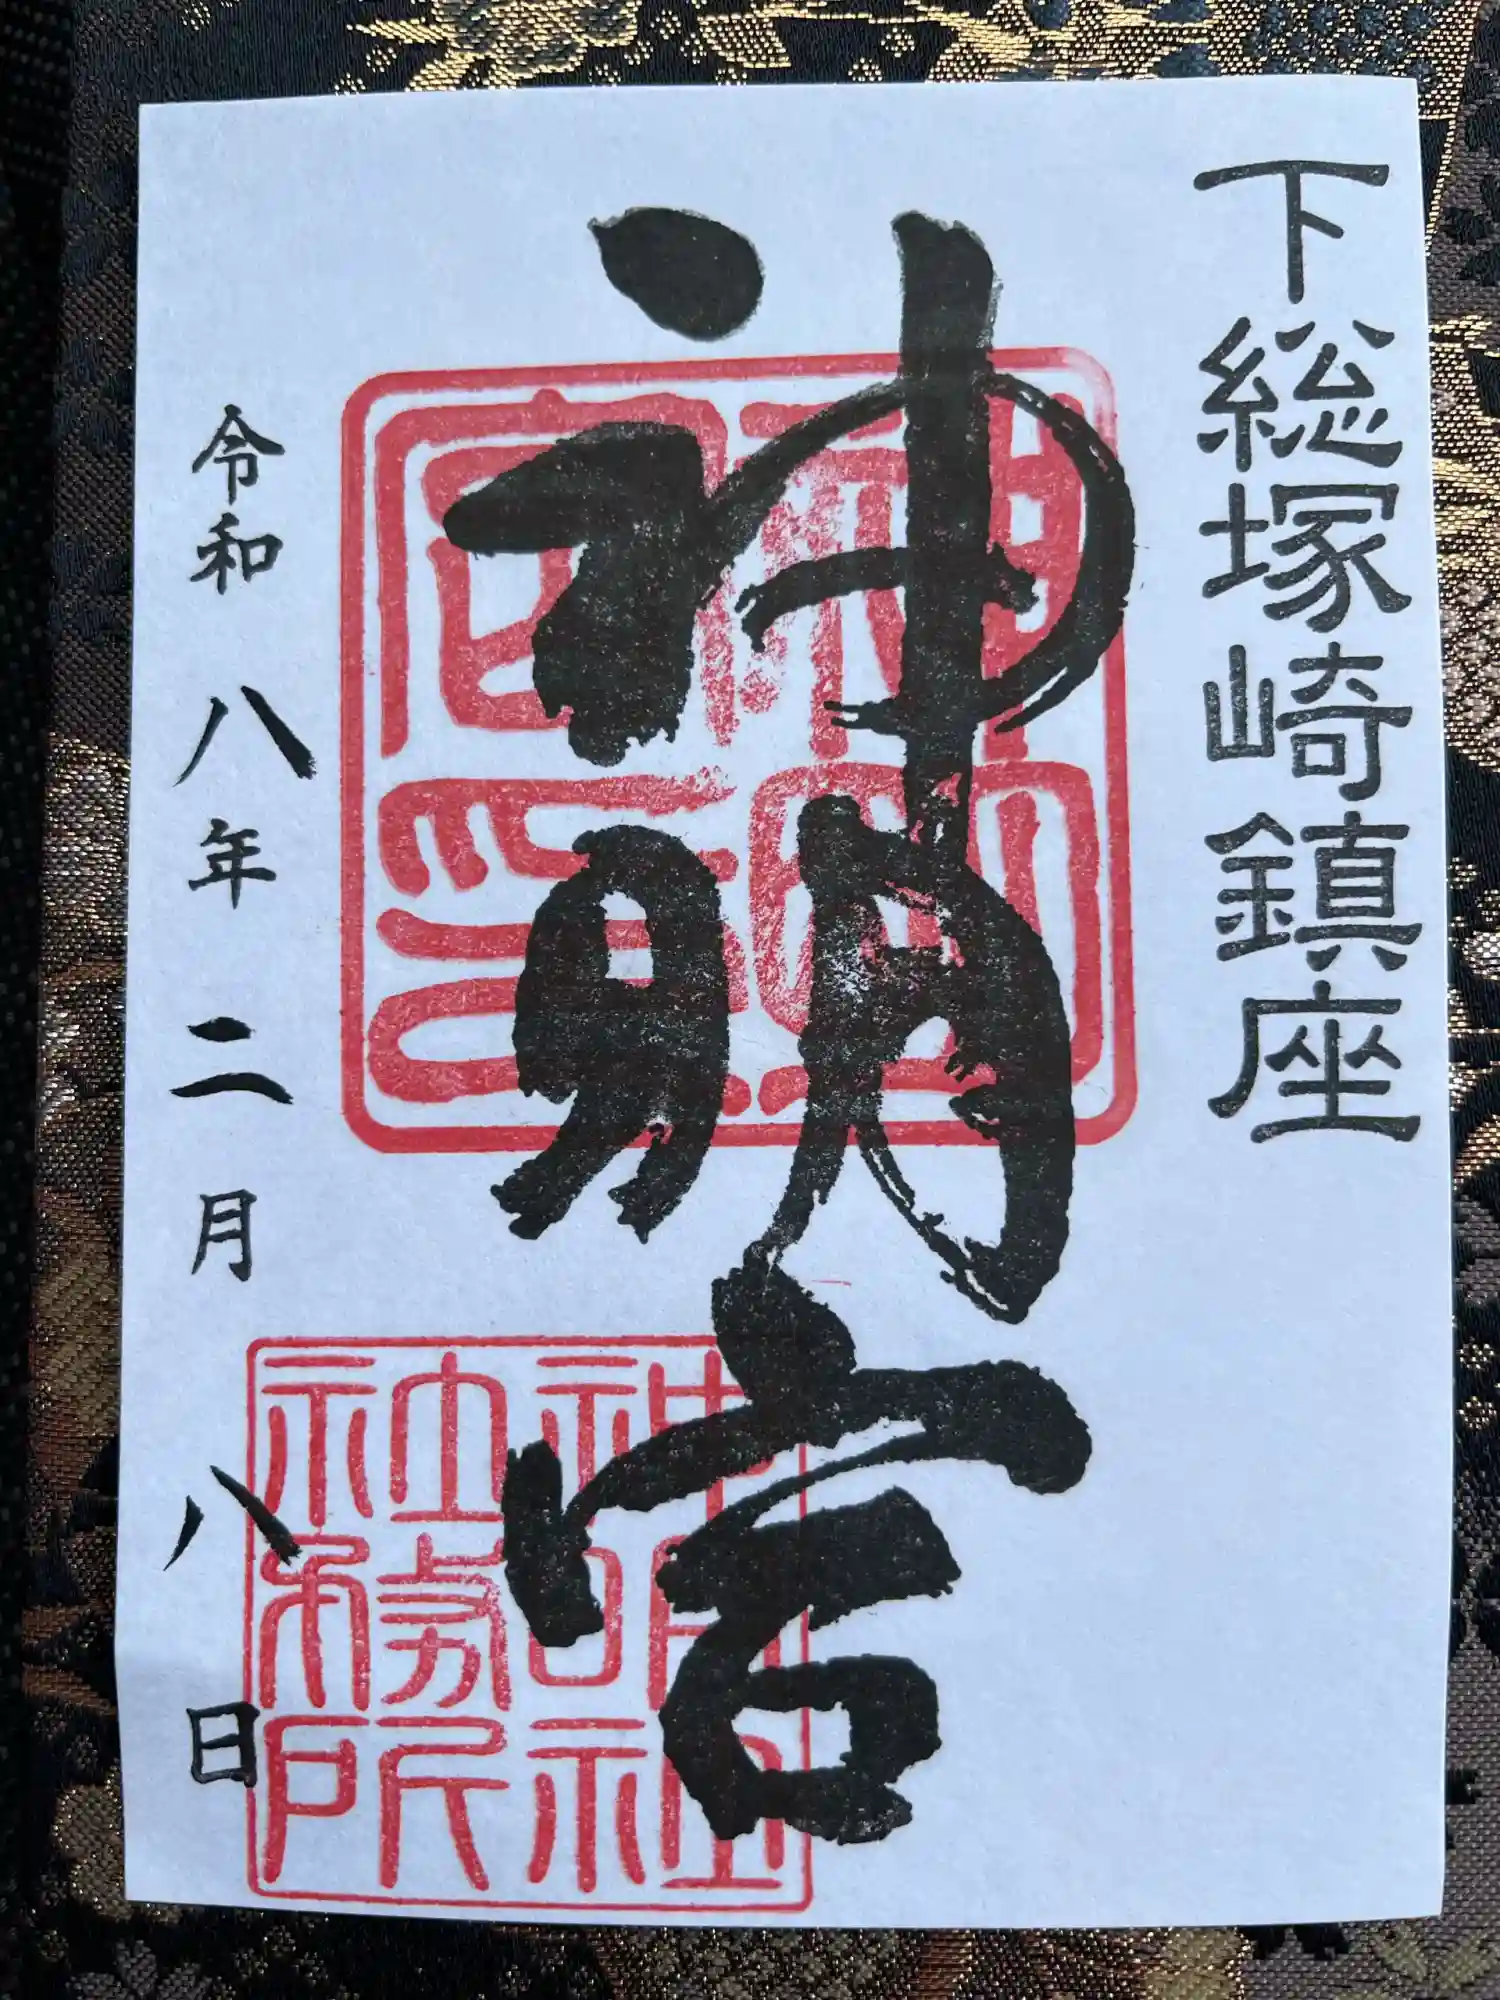 下総塚崎鎮座
神明宮
令和八年二月八日
神明社
社務所